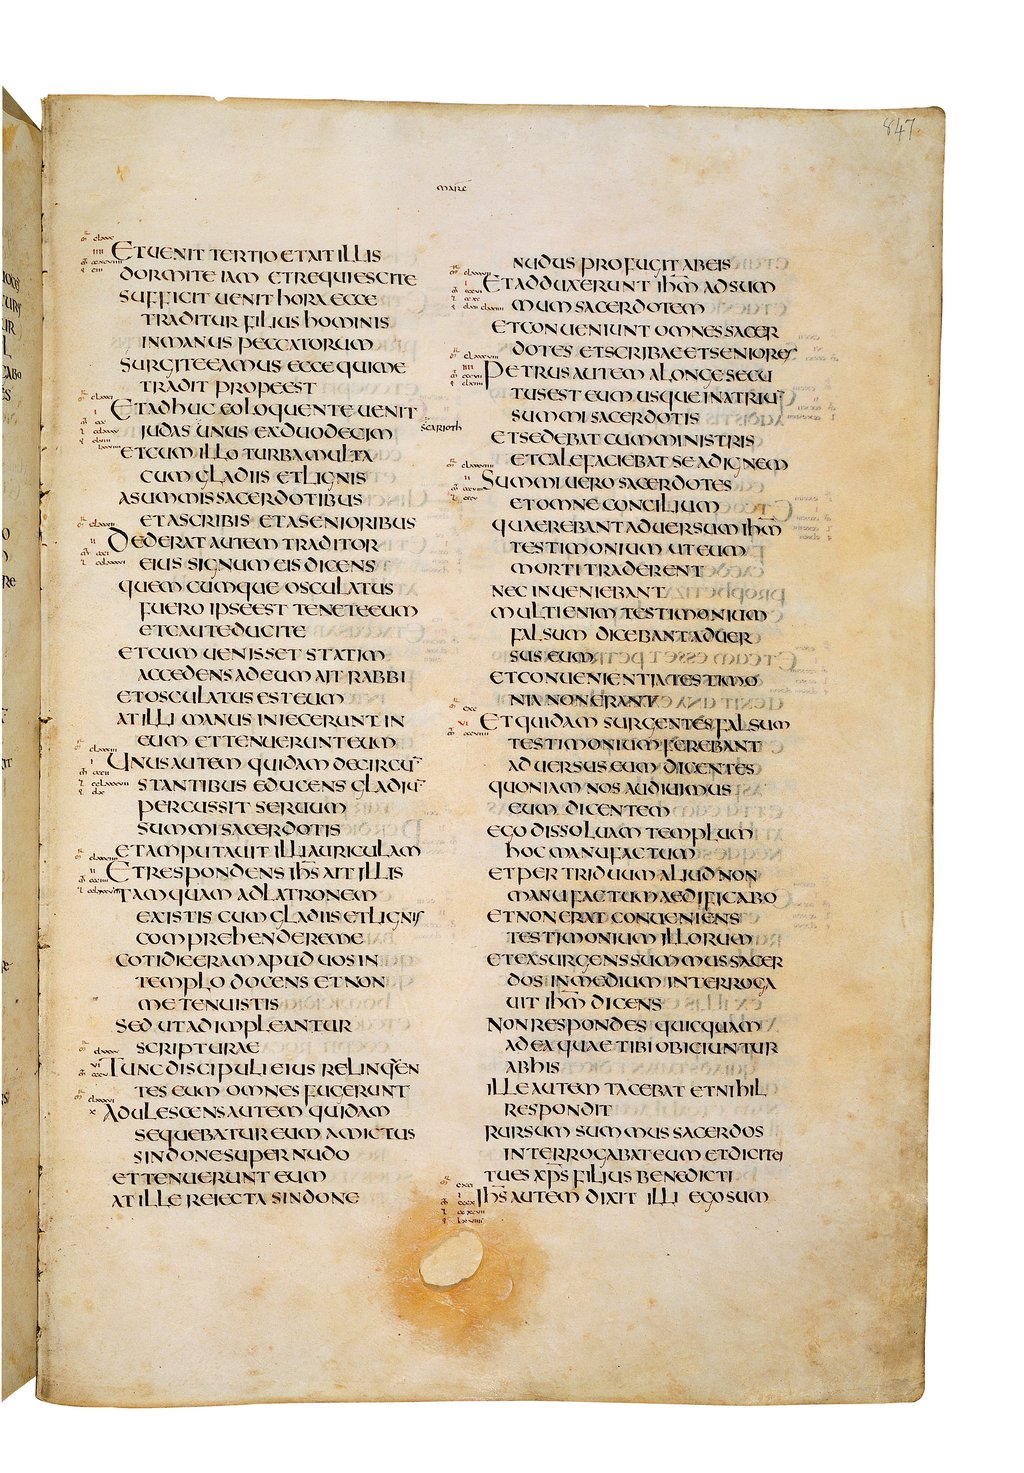 847
marc
ET UENIT TERTIO ET AIT ILLIS
DORMITE IAM ET REQUIESCITE
SUFFICIT UENIT HORA ECCE
TRADITUR FILIUS HOMINIS
IN MANUS PECCATORUM
SURGITE EAMUS ECCE QUI ME
TRADIT PROPE EST
ET ADHUC EO LOQUENTE UENIT
IUDAS UNUS EX DUODECIM
scarioth
ET CUM ILLO TURBA MULTA
CUM GLADIIS ET LIGNIS
A SUMMIS SACERDOTIBUS
ET A SCRIBIS ET A SENIORIBUS
DEDERAT AUTEM TRADITOR
EIUS SIGNUM EIS DICENS
QUEMCUMQUE OSCULATUS
FUERO IPSE EST TENETE EUM
ET CAUTE DUCITE
ET CUM UENISSET STATIM
ACCEDENS AD EUM AIT RABBI
ET OSCULATUS EST EUM
AT ILLI MANUS INIECERUNT IN
EUM ET TENUERUNT EUM
UNUS AUTEM QUIDAM DE CIRCU̅
STANTIBUS EDUCENS GLADIU̅
PERCUSSIT SERUUM
SUMMI SACERDOTIS
ET AMPUTAUIT ILLI AURICULAM
ET RESPONDENS IH̅S AIT ILLIS
TAMQUAM AD LATRONEM
EXISTIS CUM GLADIIS ET LIGNIS
COMPREHENDERE ME
COTIDIE ERAM APUD UOS IN
TEMPLO DOCENS ET NON
ME TENUISTIS
SED UT ADIMPLEANTUR
SCRIPTURAE
TUNC DISCIPULI EIUS RELINQEN
TES EUM OMNES FUGERUNT
ADULESCENS AUTEM QUIDAM
SEQUEBATUR EUM AMICTUS
SINDONE SUPER NUDO
ET TENUERUNT EUM
AT ILLE REIECTA SINDONE
NUDUS PROFUGIT AB EIS
ET ADDUXERUNT IH̅M AD SUM
MUM SACERDOTEM
ET CONUENIUNT OMNES SACER
DOTES ET SCRIBAE ET SENIORES
PETRUS AUTEM A LONGE SECU
TUS EST EUM USQUE IN ATRIU̅
SUMMI SACERDOTIS
ET SEDEBAT CUM MINISTRIS
ET CALEFACIEBAT SE AD IGNEM
SUMMI UERO SACERDOTES
ET OMNE CONCILIUM
QUAEREBANT ADUERSUM IH̅M
TESTIMONIUM UT EUM
MORTI TRADERENT
NEC INUENIEBANT
MULTI ENIM TESTIMONIUM
FALSUM DICEBANT ADUER
SUS EUM
ET CONUENIENTIA TESTIMO
NIA NON ERANT
ET QUIDAM SURGENTES FALSUM
TESTIMONIUM FEREBANT
ADUERSUS EUM DICENTES
QUONIAM NOS AUDIUIMUS
EUM DICENTEM
EGO DISSOLUAM TEMPLUM
HOC MANUFACTUM
ET PER TRIDUUM ALIUD NON
MANUFACTUM AEDIFICABO
ET NON ERAT CONUENIENS
TESTIMONIUM ILLORUM
ET EXSURGENS SUMMUS SACER
DOS IN MEDIUM INTERROGA
UIT IH̅M DICENS
NON RESPONDES QUICQUAM
AD EA QUAE TIBI OBICIUNTUR
AB HIS
ILLE AUTEM TACEBAT ET NIHIL
RESPONDIT
RURSUM SUMMUS SACERDOS
INTERROGABAT EUM ET DICIT EI
TU ES XP̅S FILIUS BENEDICTI
IH̅S AUTEM DIXIT ILLI EGO SUM